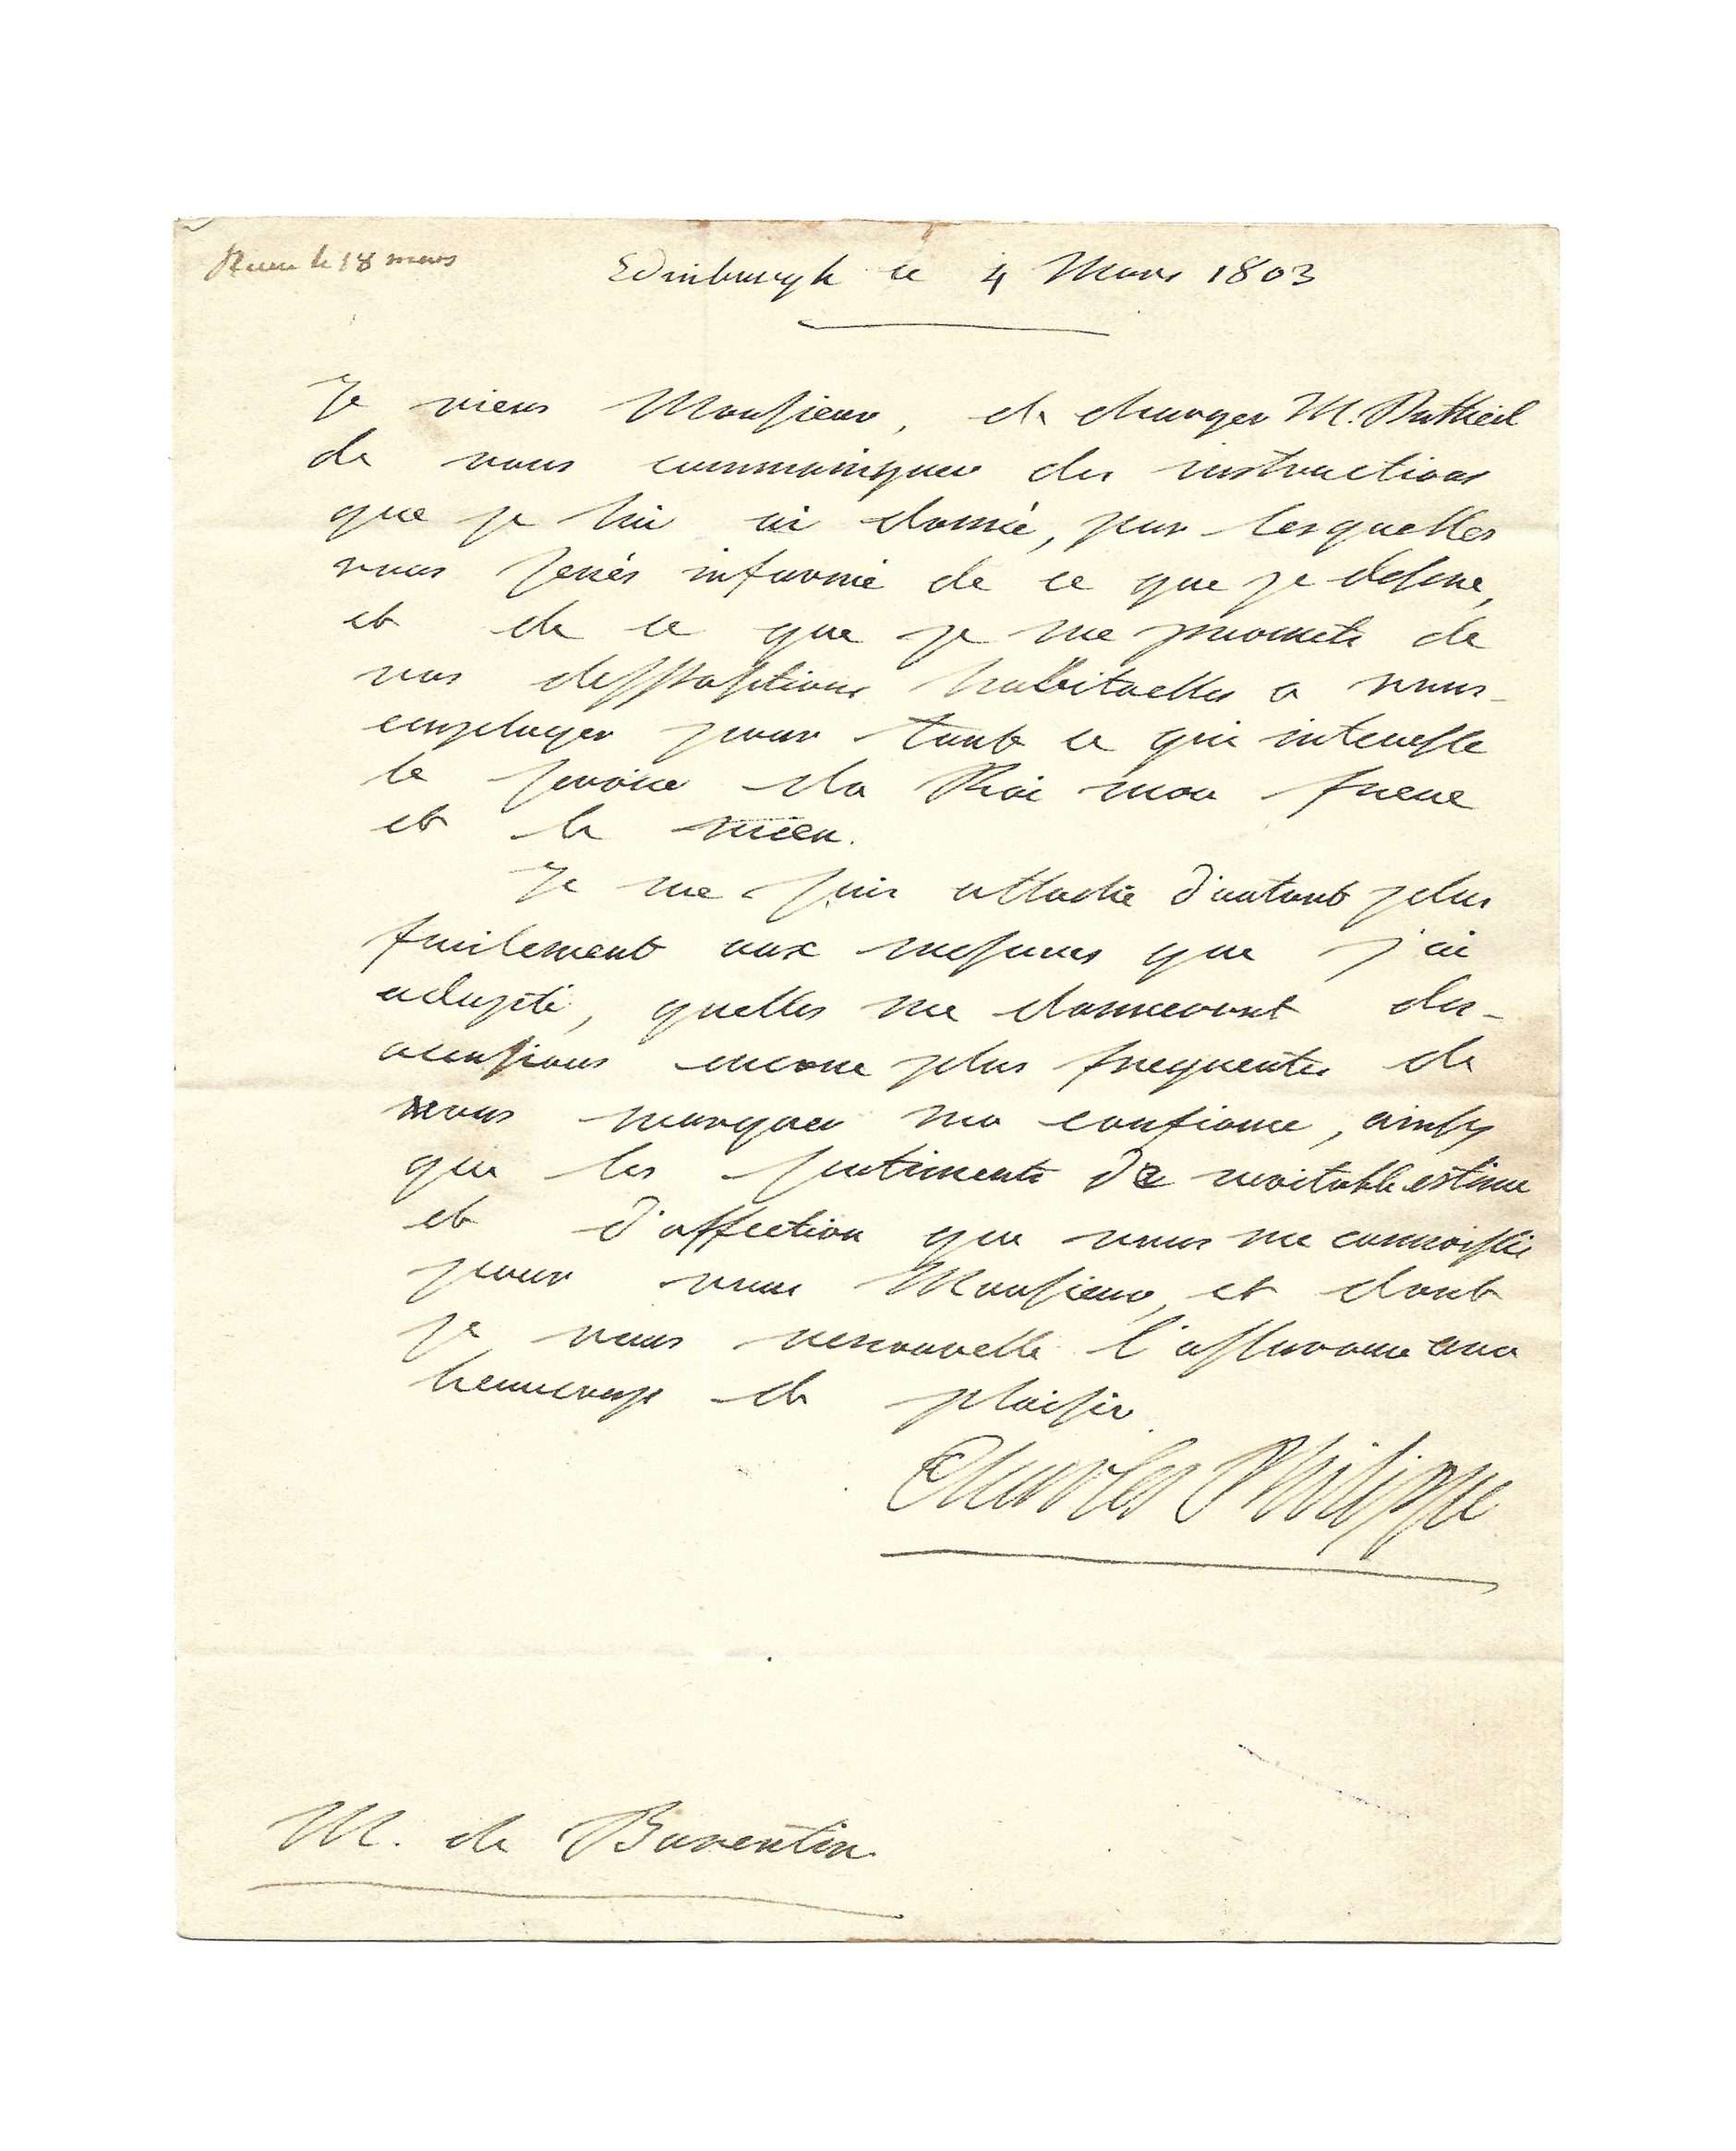 Recue le 18 mars
Edinburgh ce 4 Mars 1803
Je viens Monsieur, de charger M. Dutheil
de vous communiquer des instructions
que je lui ai donné, par lesquelles
vous serés informé de ce que je desire,
et de ce que je me promets de
vos dispositions habituelles a vous
employer pour tout ce qui interesse
le service du Roi mon frere
et le mien.
Je me suis attaché d'autant plus
facilement aux mesures que j'ai
adopté, quelles me donneront des
occasions encore plus frequentes de
vous marquer ma confiance, ainsy
que les sentiments de veritable estime
et d'affection que vous me connoissés
pour vous Monsieur, et dont
je vous renouvelle l'assurance avec
beaucoup de plaisir.
Charles Philippe
M. de Barentin